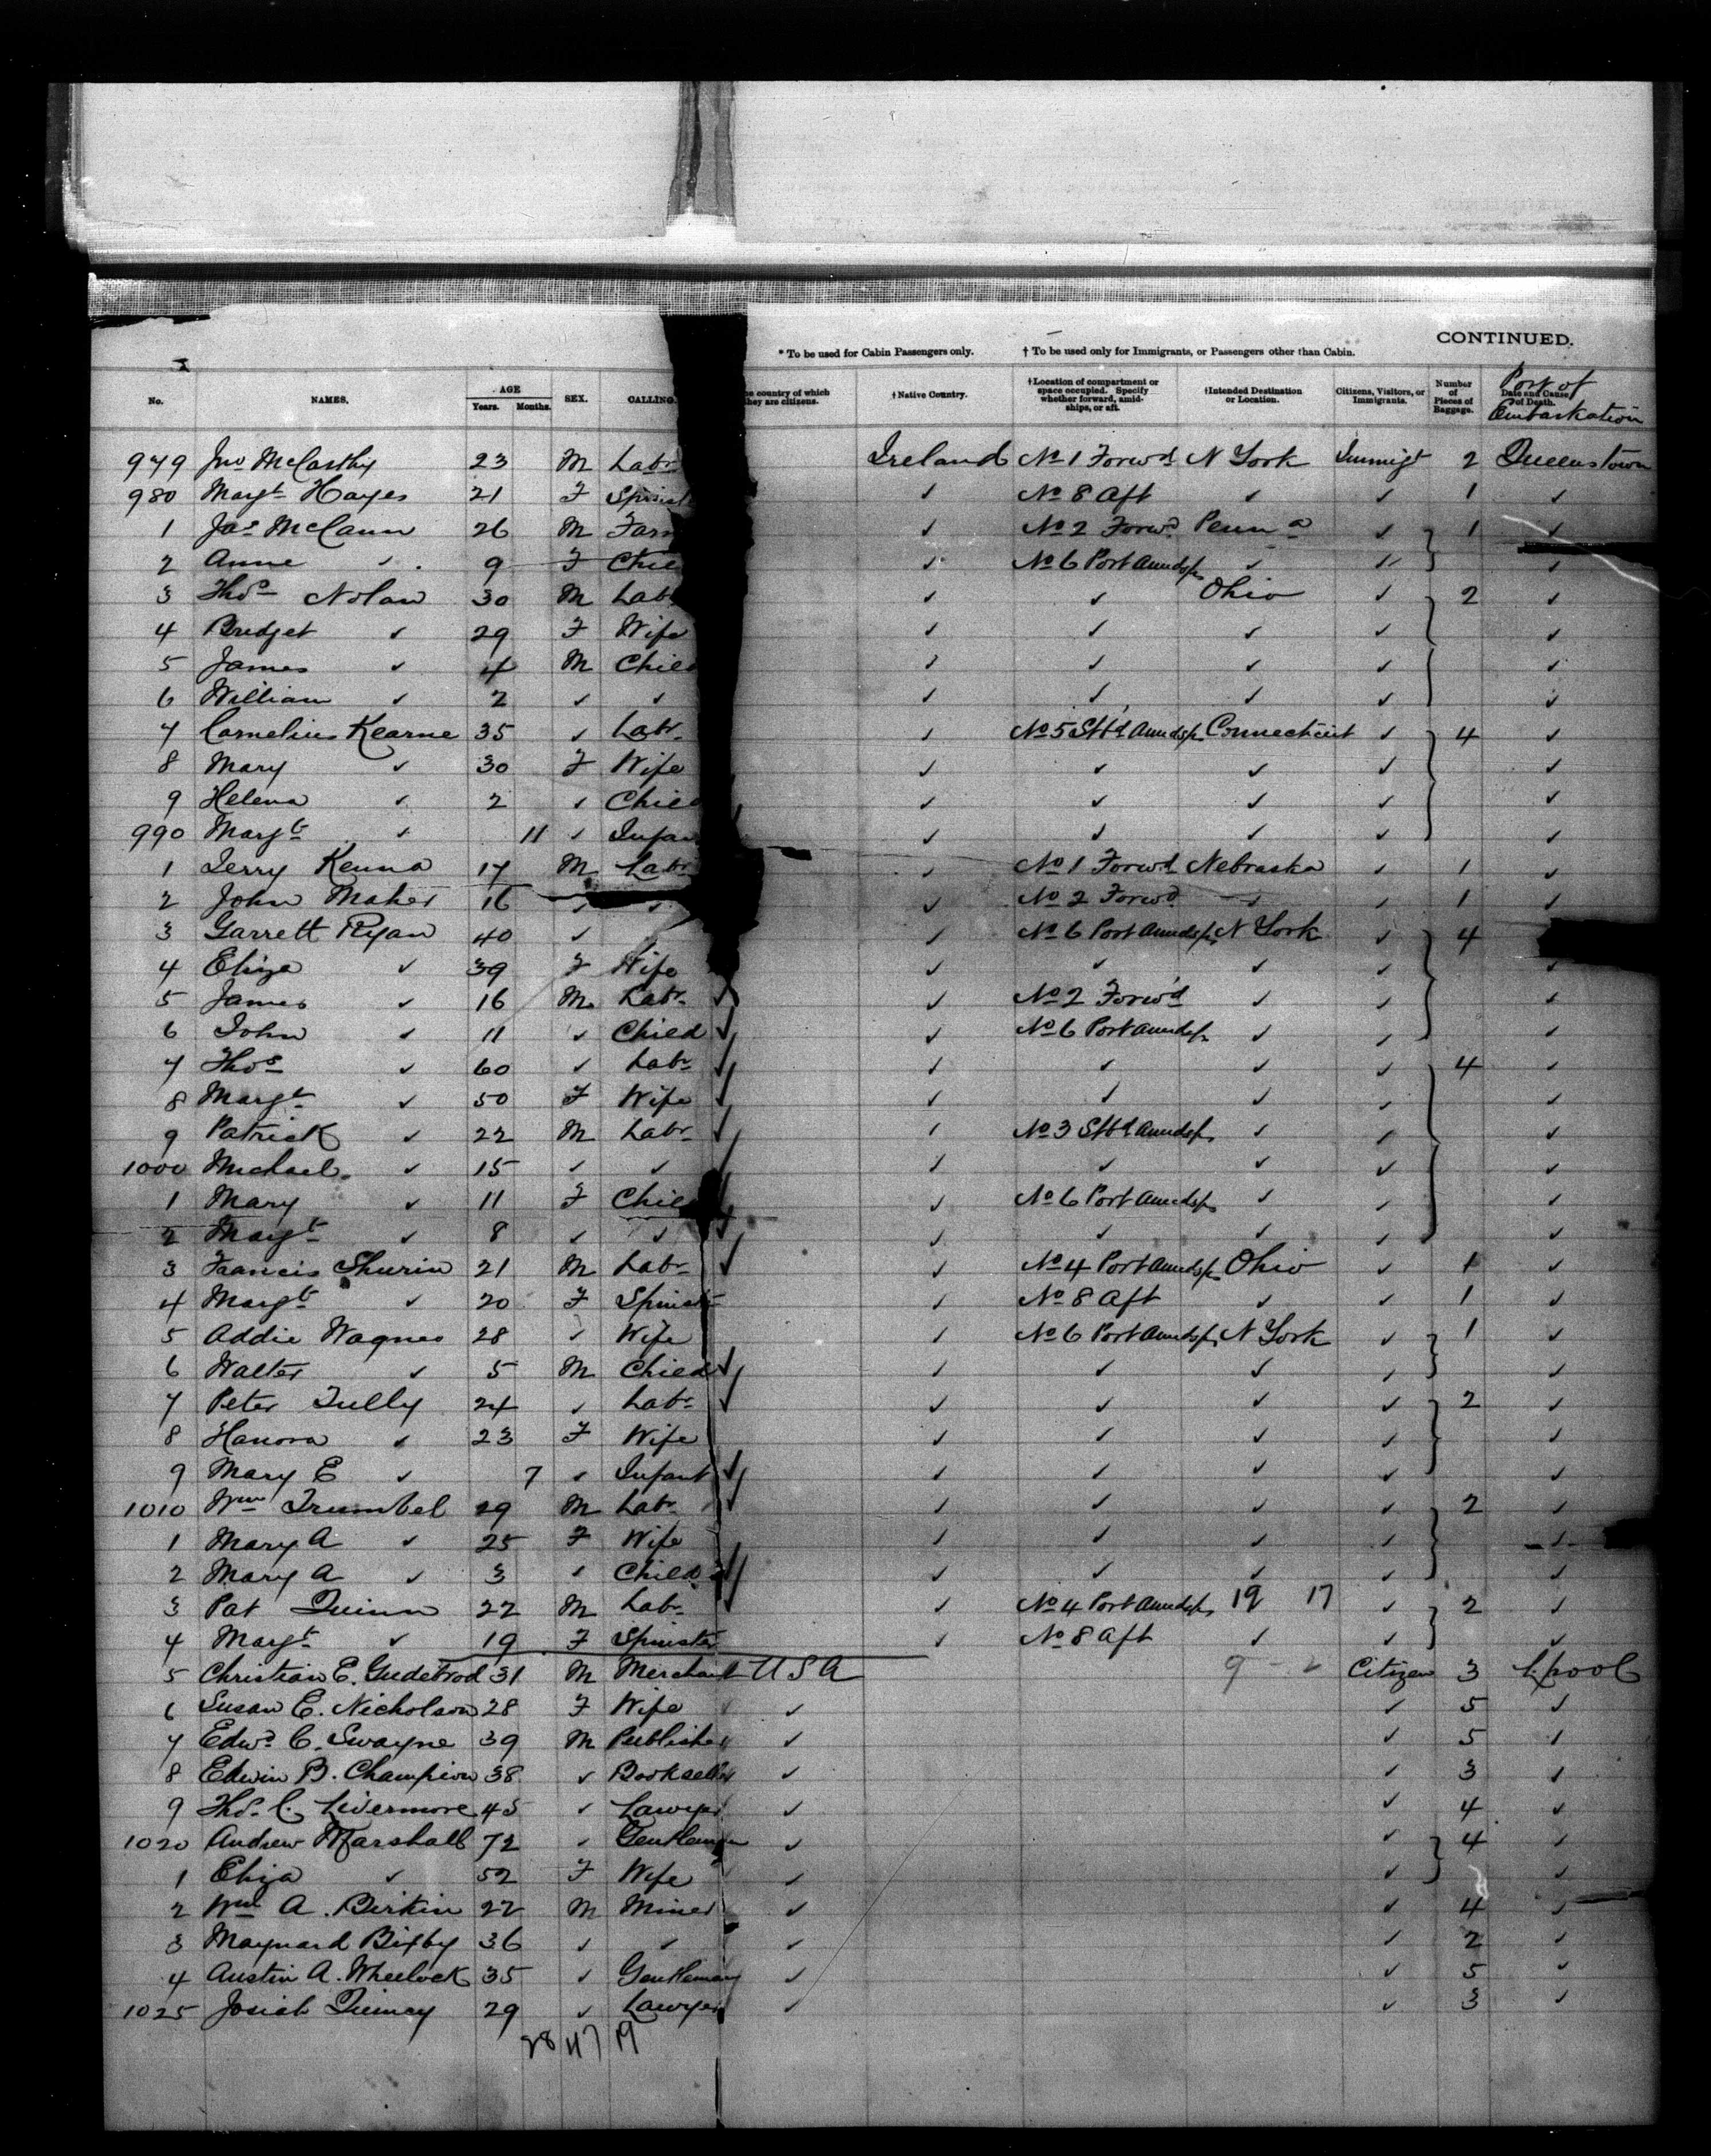 CONTINUED.
* To be used for Cabin Passengers only. † To be used only for Immigrants, or Passengers other than Cabin.
No. NAMES. AGE Years. Months. SEX. CALLING. country of which they are citizens. † Native Country. † Location of compartment or space occupied. Specify whether forward, amidships, or aft. † Intended Destination or Location. Citizens, Visitors, or Immigrants. Number of Pieces of Baggage. Date and Cause of Death. Port of Embarkation
979 Jno McCarthy 23 M Labr Ireland No 1 Forwd N York Immigt 2 Queenstown
980 Margt Hayes 21 F Spinst ✓ No 8 Aft ✓ ✓ 1 ✓
1 Jas McCann 26 M Farm ✓ No 2 Forwd Penna ✓ 1 ✓
2 Anne ✓ 9 F Chil ✓ No 6 Port Amidsps ✓ ✓ ✓
3 Thos Nolan 30 M Lab ✓ ✓ Ohio ✓ 2 ✓
4 Bridget ✓ 29 F Wife ✓ ✓ ✓ ✓ ✓
5 James ✓ 4 M Child ✓ ✓ ✓ ✓ ✓
6 William ✓ 2 ✓ ✓ ✓ ✓ ✓ ✓ ✓
7 Cornelius Kearne 35 ✓ Labr ✓ No 5 Stbd Amidsps Connecticut ✓ 4 ✓
8 Mary ✓ 30 F Wife ✓ ✓ ✓ ✓ ✓
9 Helena ✓ 2 ✓ Child ✓ ✓ ✓ ✓ ✓
990 Margt ✓ 11 ✓ Infan ✓ ✓ ✓ ✓ ✓
1 Jerry Kenna 17 M Labr ✓ No 1 Forwd Nebraska ✓ 1 ✓
2 John Maher 16 ✓ ✓ ✓ No 2 Forwd ✓ ✓ 1 ✓
3 Garrett Ryan 40 ✓ ✓ No 6 Port Amidsps N York ✓ 4
4 Eliza ✓ 39 F Wife ✓ ✓ ✓ ✓ ✓
5 James ✓ 16 M Labr ✓ ✓ No 2 Forwd ✓ ✓ ✓
6 John ✓ 11 ✓ Child ✓ ✓ No 6 Port Amidsps ✓ ✓ ✓
7 Thos ✓ 60 ✓ Labr ✓ ✓ ✓ ✓ ✓ 4 ✓
8 Margt ✓ 50 F Wife ✓ ✓ ✓ ✓ ✓ ✓
9 Patrick ✓ 22 M Labr ✓ ✓ No 3 Stbd Amidsps ✓ ✓ ✓
1000 Michael ✓ 15 ✓ ✓ ✓ ✓ ✓ ✓ ✓ ✓
1 Mary ✓ 11 F Child ✓ ✓ No 6 Port Amidsps ✓ ✓ ✓
2 Margt ✓ 8 ✓ ✓ ✓ ✓ ✓ ✓ ✓ ✓
3 Francis Shurin 21 M Labr ✓ ✓ No 4 Port Amidsps Ohio ✓ 1 ✓
4 Margt ✓ 20 F Spinstr ✓ No 8 Aft ✓ ✓ 1 ✓
5 Addie Wagner 28 ✓ Wife ✓ No 6 Port Amidsps N York ✓ 1 ✓
6 Walter ✓ 5 M Child ✓ ✓ ✓ ✓ ✓ ✓
7 Peter Tully 24 ✓ Labr ✓ ✓ ✓ ✓ ✓ 2 ✓
8 Hanora ✓ 23 F Wife ✓ ✓ ✓ ✓ ✓
9 Mary E ✓ 7 ✓ Infant ✓ ✓ ✓ ✓ ✓ ✓
1010 Wm Trumbel 29 M Labr ✓ ✓ ✓ ✓ ✓ 2 ✓
1 Mary A ✓ 25 F Wife ✓ ✓ ✓ ✓ ✓
2 Mary A ✓ 3 ✓ Child ✓ ✓ ✓ ✓ ✓ ✓
3 Pat Quinn 22 M Labr ✓ ✓ No 4 Port Amidsps 19 17 ✓ 2 ✓
4 Margt ✓ 19 F Spinster ✓ No 8 Aft ✓ ✓ ✓
5 Christian E. Gudebrod 31 M Merchant USA 9 - 2 Citizen 3 L'pool
6 Susan E. Nicholson 28 F Wife ✓ ✓ 5 ✓
7 Edwd C. Swayne 39 M Publisher ✓ ✓ 5 ✓
8 Edwin B. Champion 38 ✓ Bookseller ✓ ✓ 3 ✓
9 Thos C. Livermore 45 ✓ Lawyer ✓ ✓ 4 ✓
1020 Andrew Marshall 72 ✓ Gentleman ✓ ✓ 4 ✓
1 Eliza ✓ 52 F Wife ✓ ✓ ✓
2 Wm A. Birkin 22 M Miner ✓ ✓ 4 ✓
3 Maynard Bixby 36 ✓ ✓ ✓ ✓ 2 ✓
4 Austin A. Wheelock 35 ✓ Gentleman ✓ ✓ 5 ✓
1025 Josiah Quincy 29 ✓ Lawyer ✓ ✓ 3 ✓
28 47 19